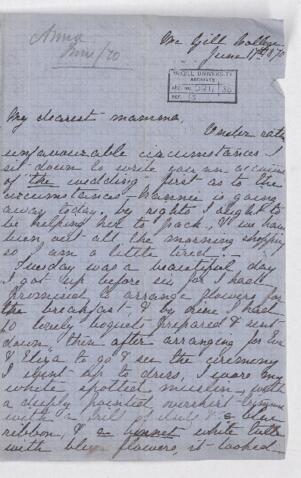 Anna
June/70
Mc Gill College
June 17th 1870
McGILL UNIVERSITY
ARCHIVES
ACC. NO. 2211 / 36
REF.
My dearest mamma,
Under rather
unfavourable circumstances I
sit down to write you an account
of the wedding - first as to the
circumstances - is going
away today, by rights I ought to
be helping her to pack, & we have
been out all the morning shopping
so I am a little tired.
Tuesday was a beautiful day
I got up before six for I had
promised to arrange flowers for
the breakfast - & by nine I had
10 lovely boquets prepared & sent
down, then after arranging for
& Eliza to go & see the ceremony
I went up to dress. I wore my
white spotted muslin, with
a deeply pointed overskirt
with a frill of & blue
ribbon, & a bonnet white tulle
with blue flowers, it looked